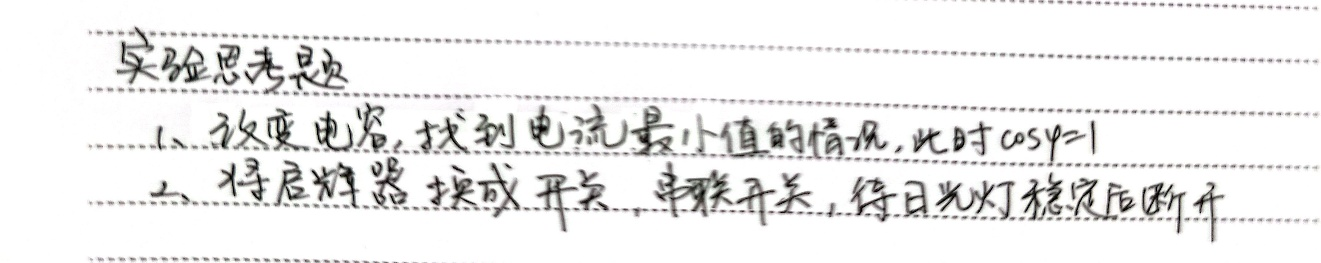 实验思考题
1、改变电容,找到电流最小值的情况,此时cosφ=1
2、将启辉器换成开关,串联开关,待日光灯稳定后断开